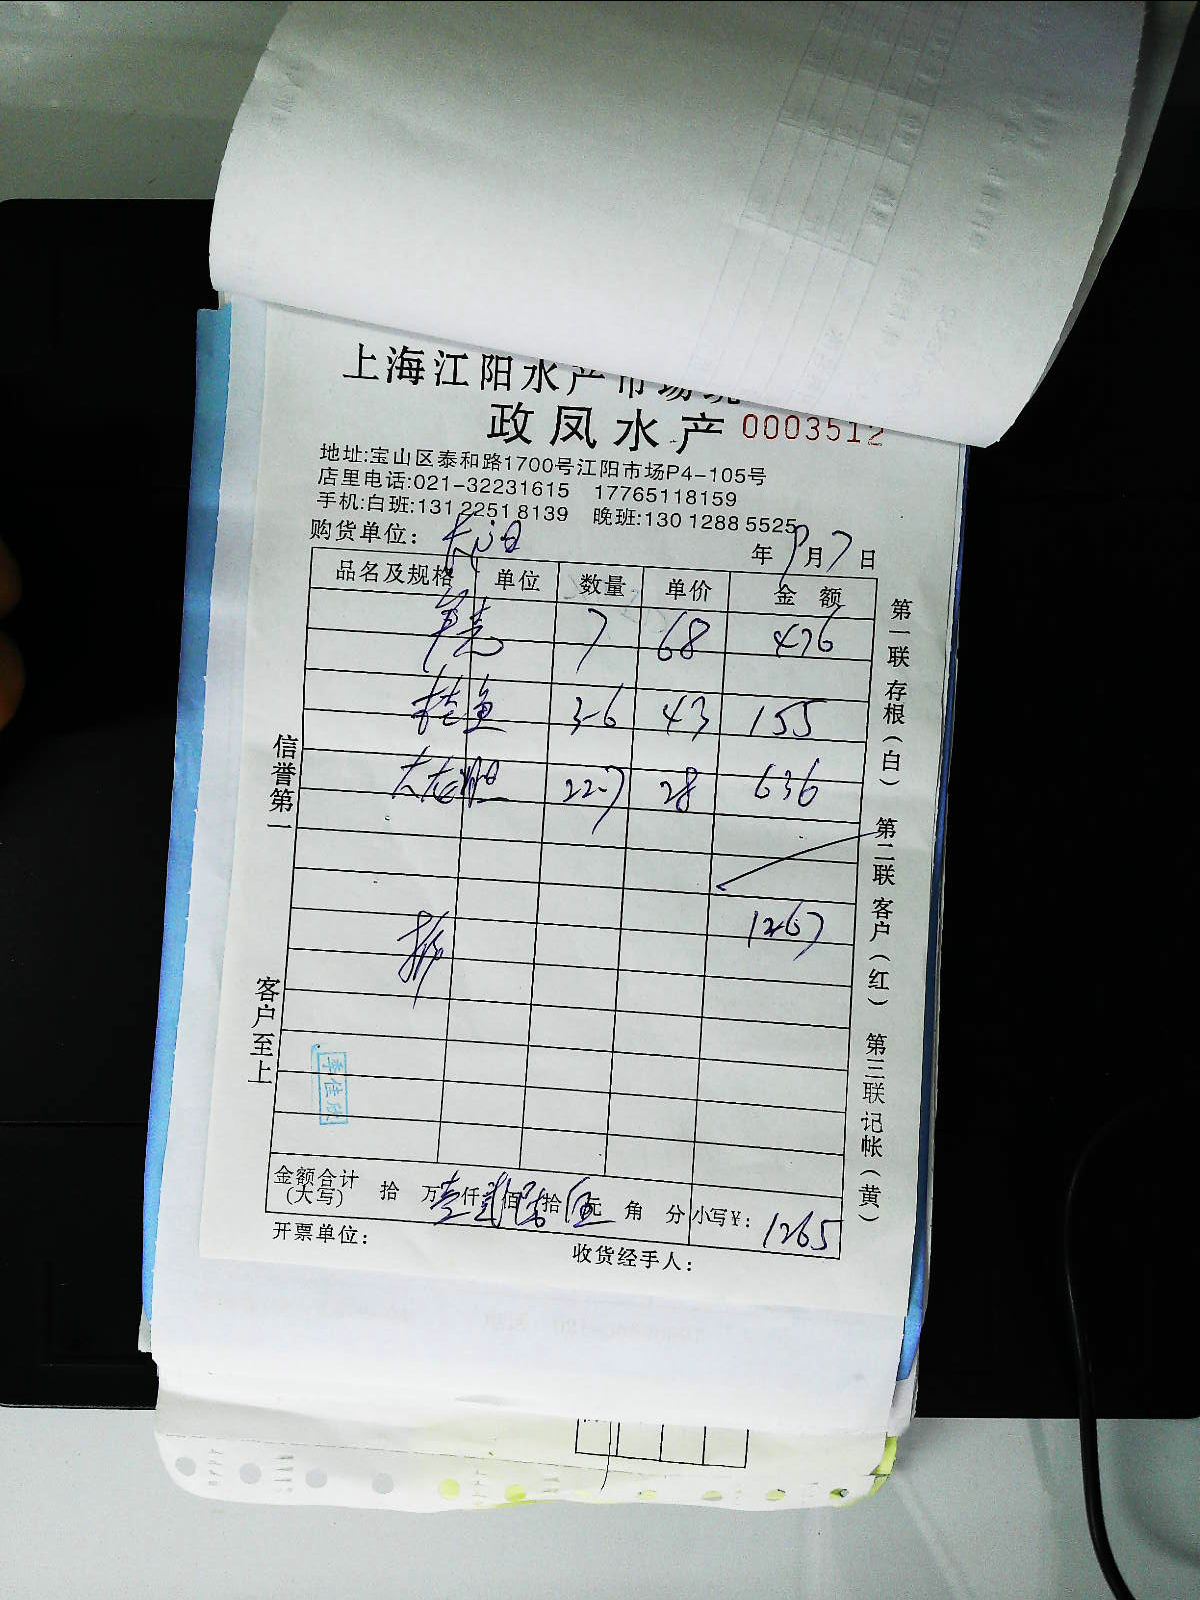 上海江阳水产市场
政凤水产 0003512
地址:宝山区泰和路1700号江阳市场P4-105号
店里电话:021-32231615 17765118159
手机:白班:131 2251 8139 晚班:130 1288 5525
购货单位: 年9月7日
品名及规格 单位 数量 单价 金额
7 68 476
桂鱼 3-6 43 155
22-7 28 636
1267
金额合计(大写) 拾 万壹仟贰佰陆拾伍元 角 分 小写¥: 1265
开票单位: 收货经手人:
信誉第一
客户至上
第一联存根(白) 第二联客户(红) 第三联记帐(黄)